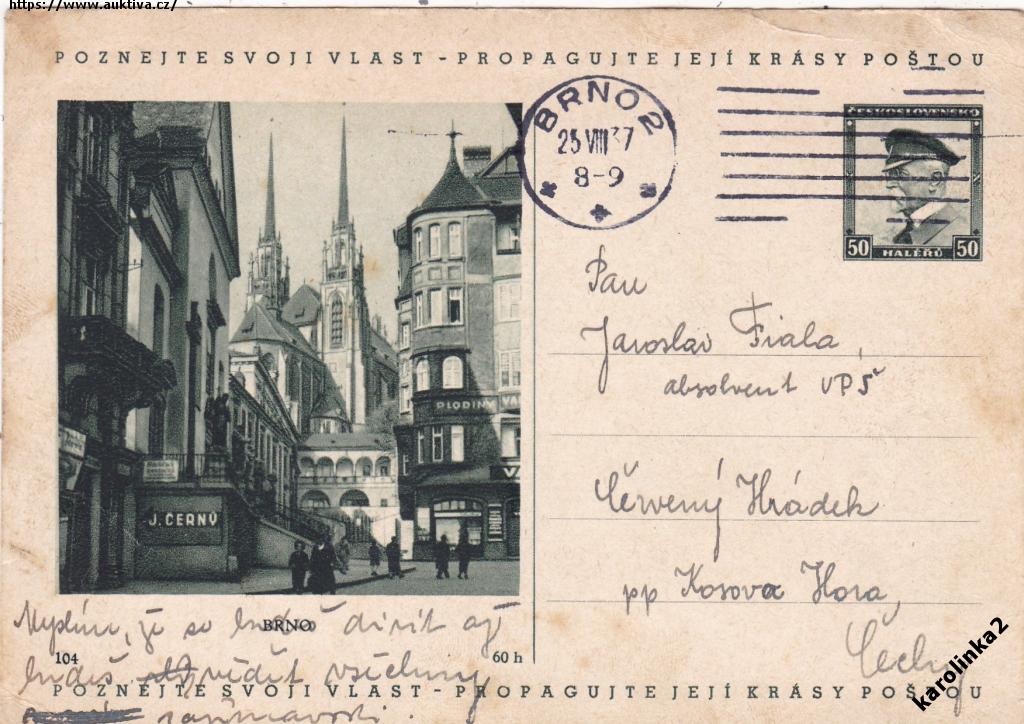 https://www.auktiva.cz/
POZNEJTE SVOJI VLAST - PROPAGUJTE JEJÍ KRÁSY POŠTOU
BRNO 2
25 VIII 37
8-9
ČESKOSLOVENSKO
50 HALÉŘŮ 50
Pan
Jaroslav Fiala,
absolvent VPŠ
Červený Hrádek
pp Kosova Hora,
Čechy
PLODINY
J. ČERNÝ
BRNO
104
60 h
Myslím, že se budeš divit až
budeš vědět všechny
zajímavosti.
POZNEJTE SVOJI VLAST - PROPAGUJTE JEJÍ KRÁSY POŠTOU
karolinka2